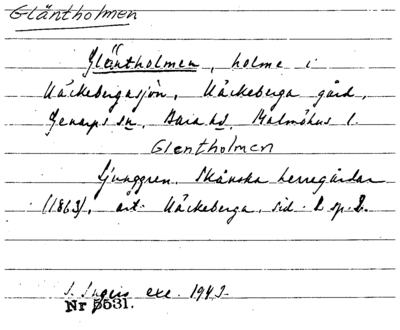 Gläntholmen
Gläntholmen, holme i
Häckebergasjön, Häckeberga gård,
Genarps sn, Bara hd, Malmöhus l.
Glentholmen
Ljunggren, Skånska herregårdar
(1863), art. Häckeberga, sid. 2 sp. 2.
S. Ingers exc. 1943.
Nr 5531.